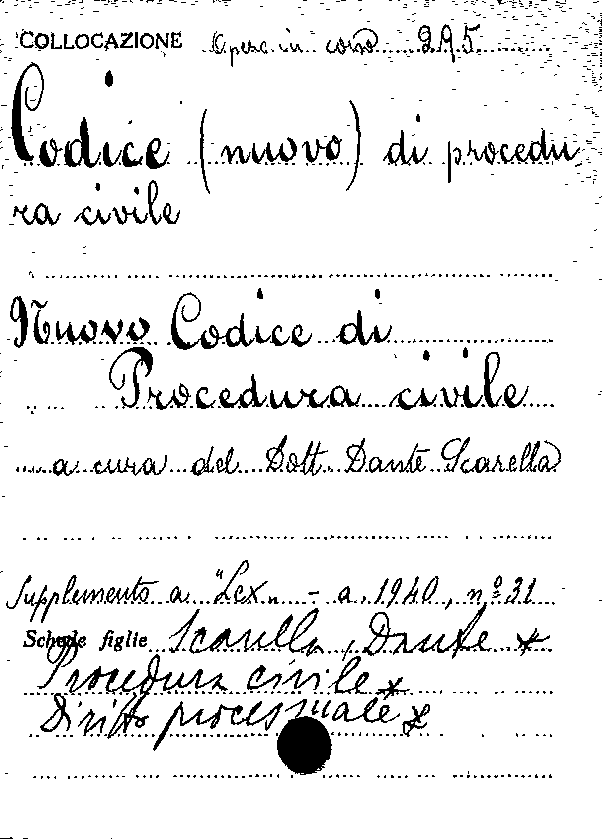 COLLOCAZIONE Opera in corso 295
Codice (nuovo) di procedu
ra civile
Nuovo Codice di
Procedura civile
a cura del Dott. Dante Scarella
Supplemento a "Lex" - a. 1940, nº 31
Schede figlie Scarella, Dante x
Procedura civile x
Diritto processuale x